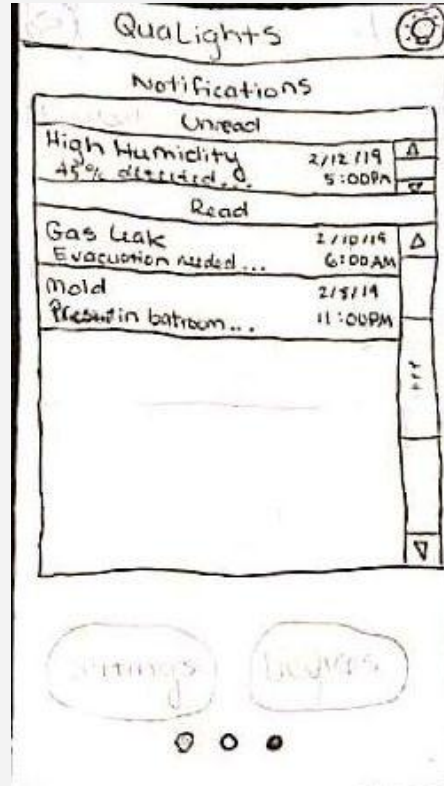 QuaLights
Notifications
Unread
High Humidity 2/12/19
45% detected... 5:00PM
Read
Gas Leak 2/10/19
Evacuation needed... 6:00AM
Mold 2/8/19
Present in batroom... 11:00PM
Settings